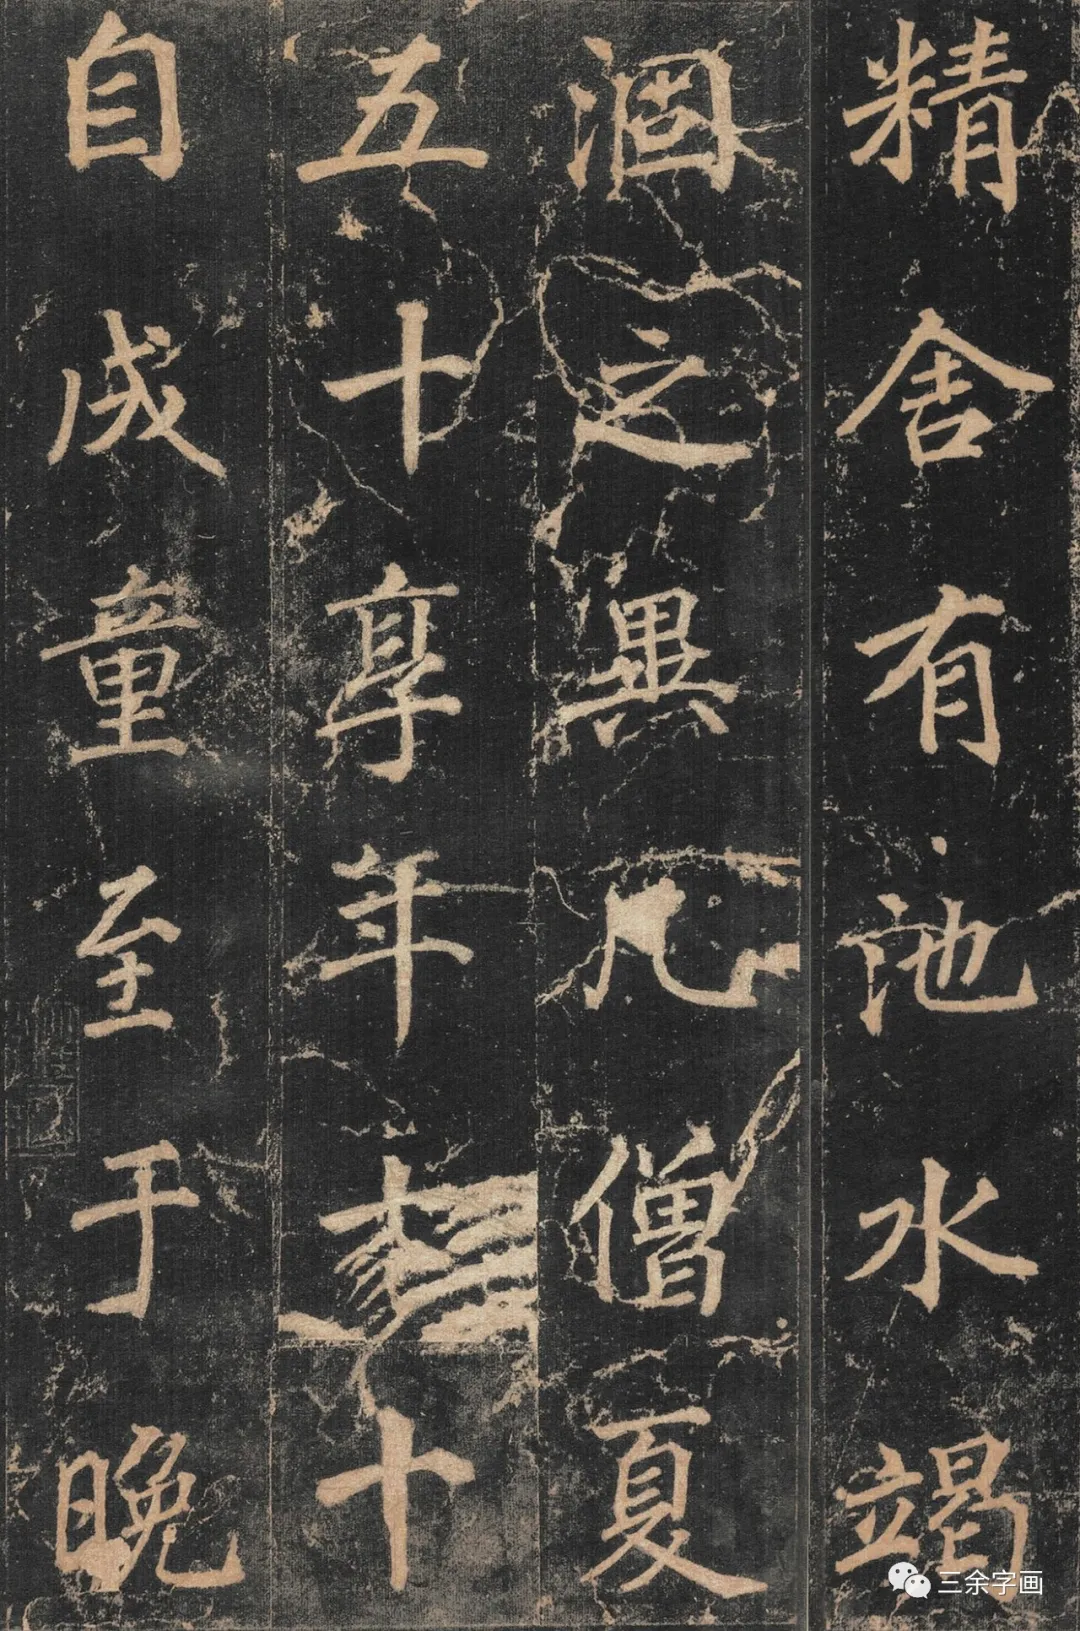 精舍有池水竭
涸之異凡僧夏
五十享年十
自成童至于晚
三余字画